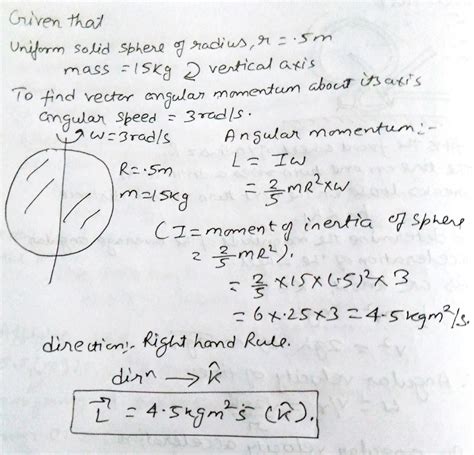 Given that
Uniform solid sphere of radius, r = .5m
mass = 15kg vertical axis
To find vector angular momentum about its axis
angular speed = 3rad/s.
w=3rad/s
R=.5m
m=15kg
Angular momentum:-
L = Iw
= 2/5 mR²×w
(I = moment of inertia of sphere
= 2/5 mR²).
= 2/5 ×15×(.5)²×3
= 6×.25×3 = 4.5kgm²/s.
direction:- Right hand Rule.
dirⁿ → k̂
L⃗ = 4.5kgm²s⁻ (k̂).